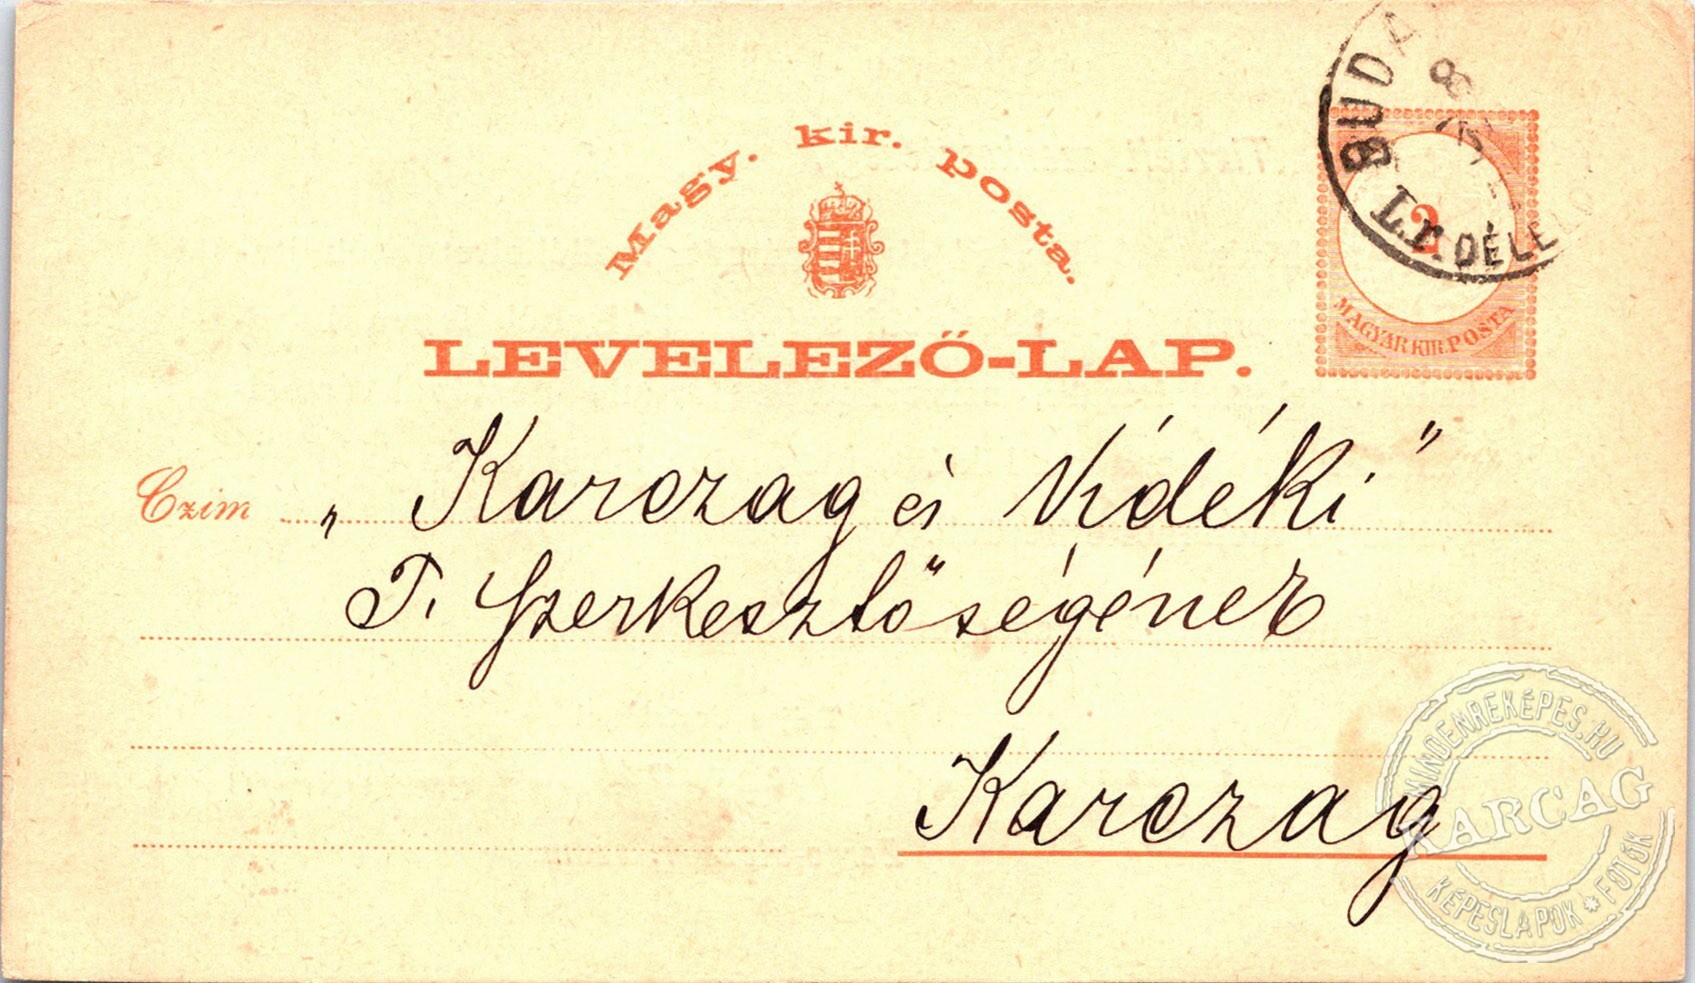 Magy. kir. posta.
LEVELEZŐ-LAP.
2
MAGYAR KIR. POSTA
L.r. DÉLE
Czim „Karczag és Vidéki”
T. Szerkesztőségének
Karczag
MINDENREKÉPES.HU
KARCAG
KÉPESLAPOK * FOTÓK